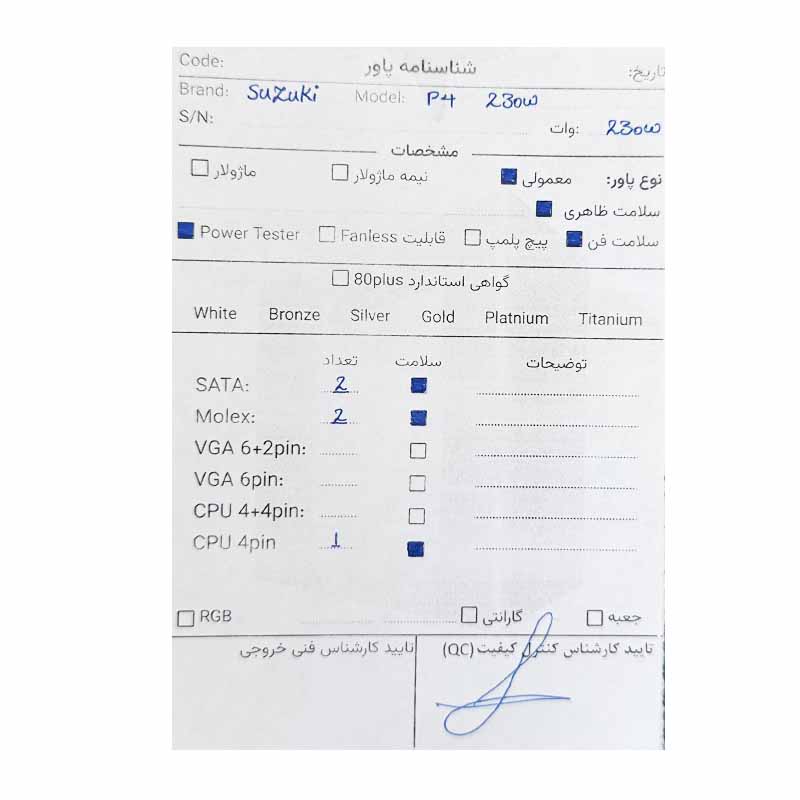 Code: شناسنامه پاور تاریخ:
Brand: Suzuki Model: P4 230w
S/N: وات: 230w
مشخصات
نوع پاور: معمولی نیمه ماژولار ماژولار
سلامت ظاهری
سلامت فن پیچ پلمپ قابلیت Fanless Power Tester
گواهی استاندارد 80plus
White Bronze Silver Gold Platnium Titanium
تعداد سلامت توضیحات
SATA: 2
Molex: 2
VGA 6+2pin:
VGA 6pin:
CPU 4+4pin:
CPU 4pin 1
RGB گارانتی جعبه
تایید کارشناس کنترل کیفیت (QC) تایید کارشناس فنی خروجی